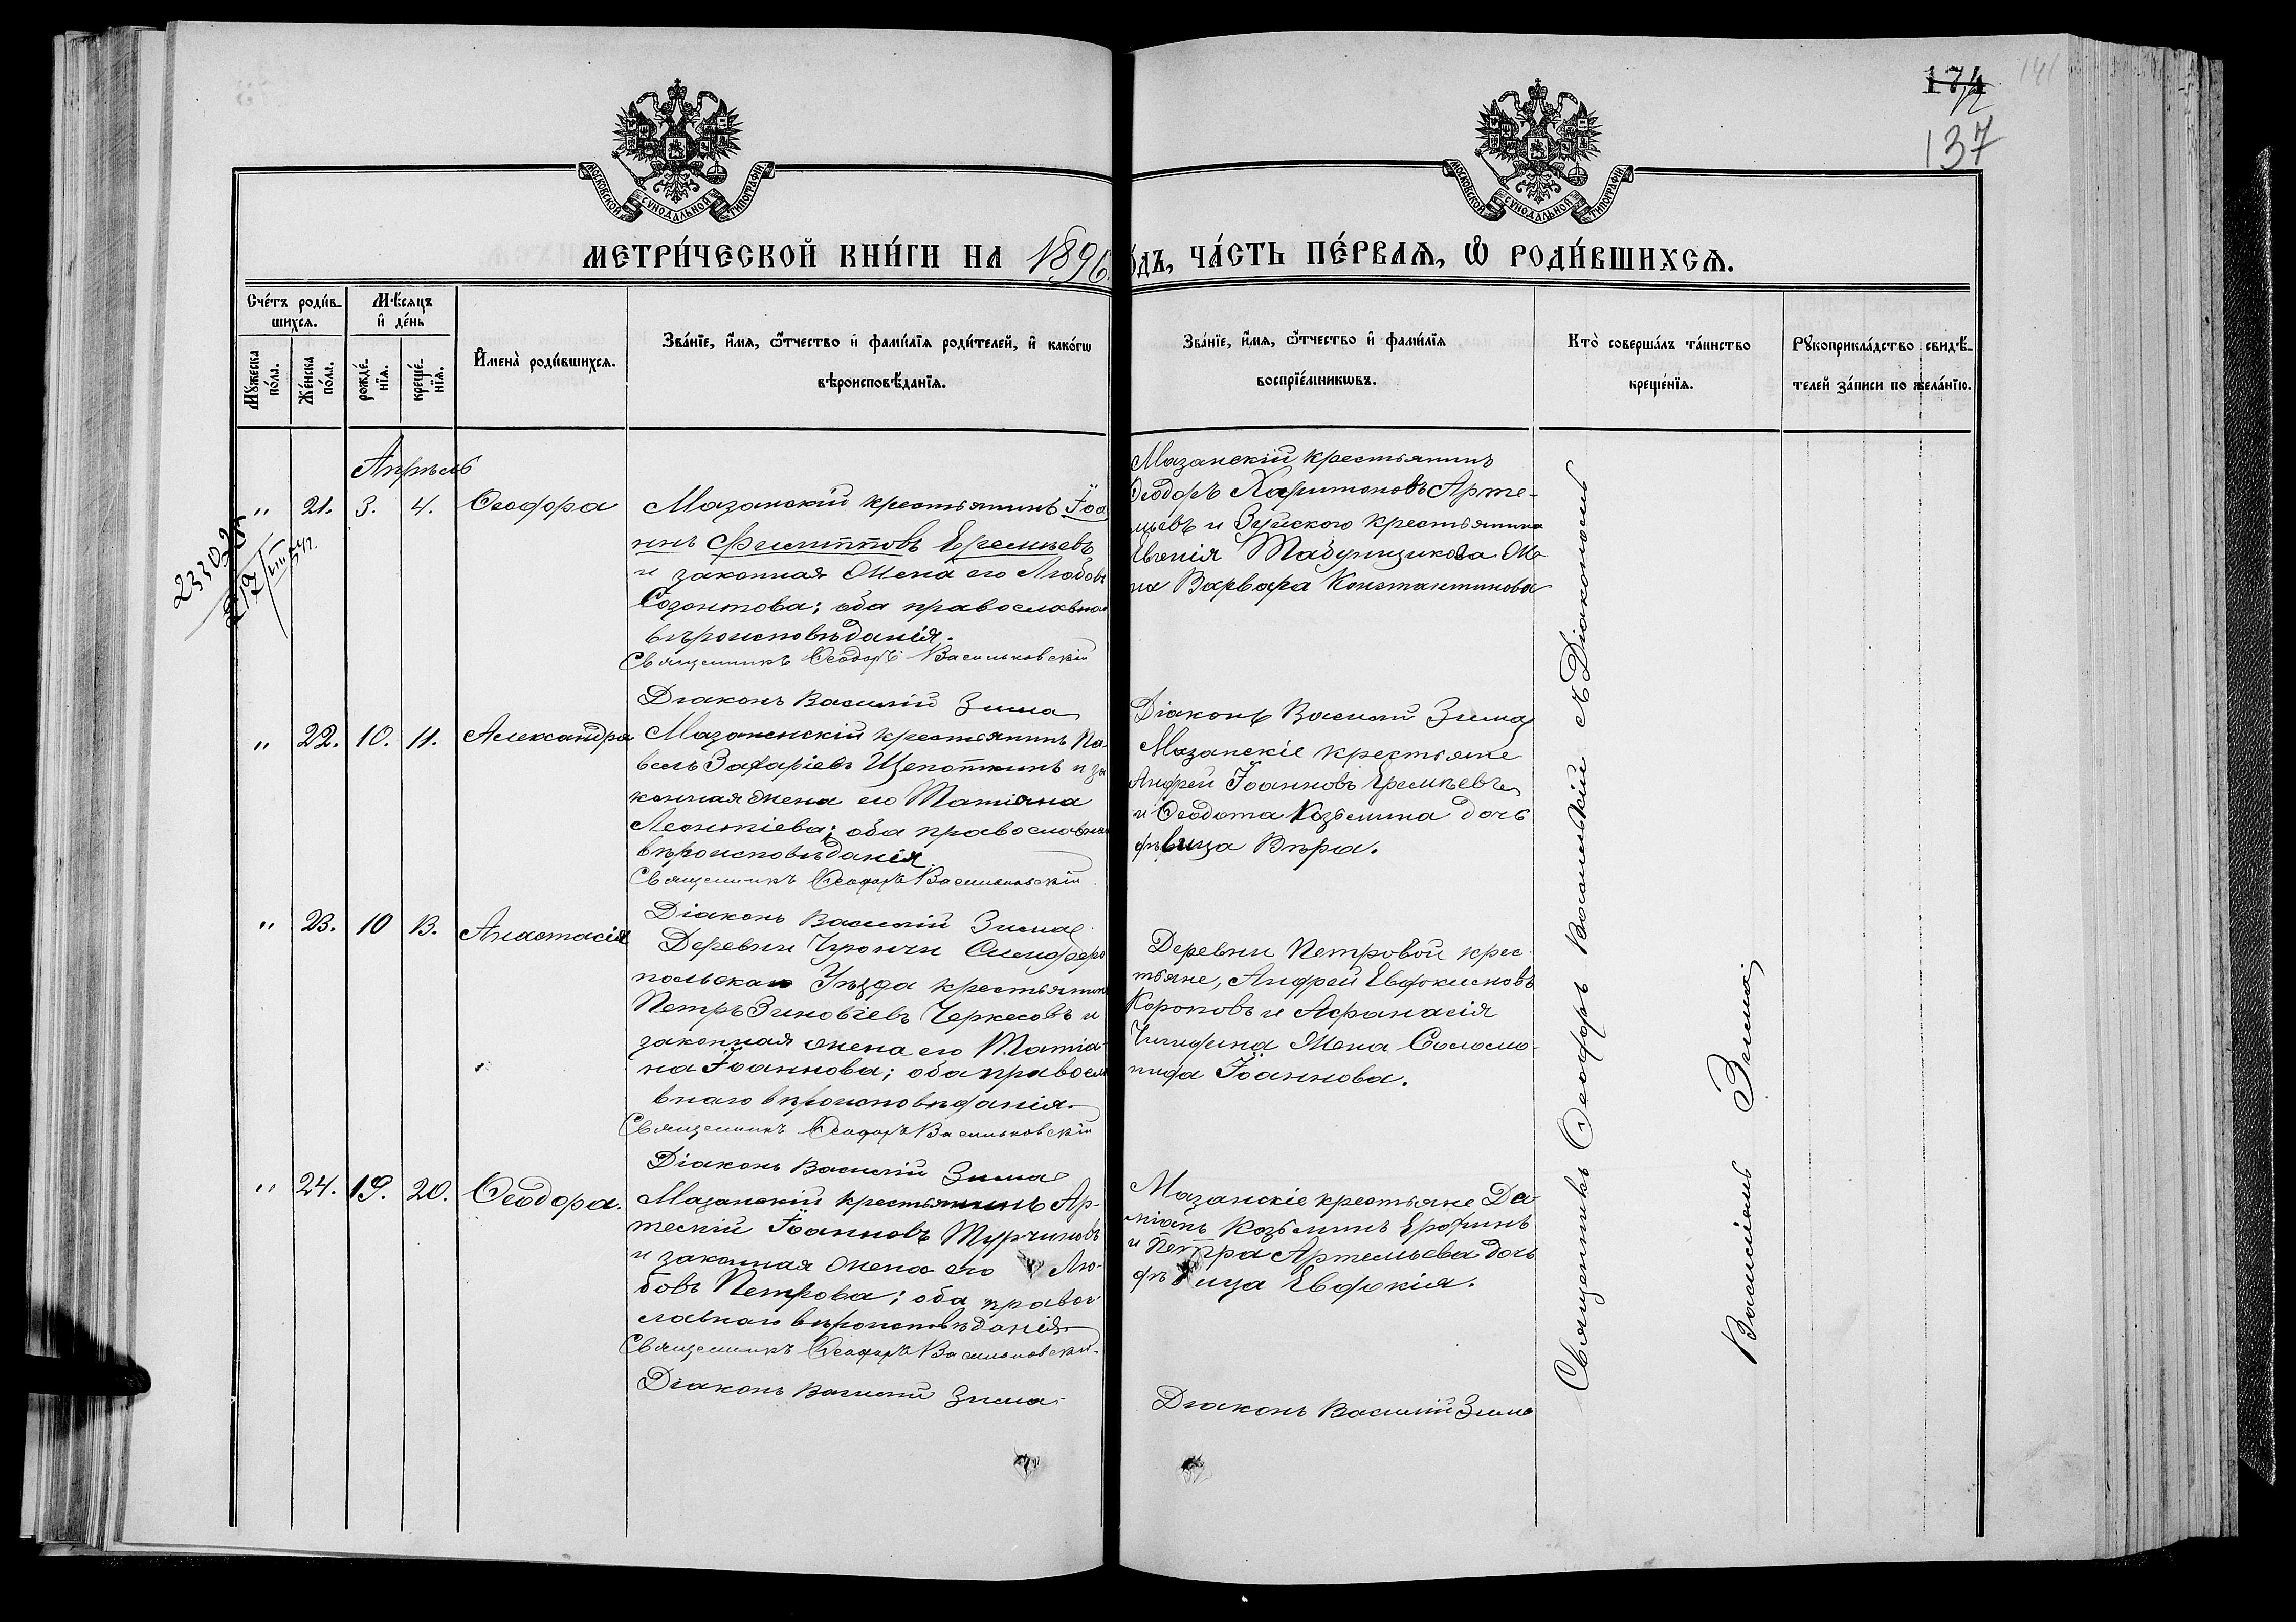 174
141
137
МОСКОВСКОЙ СѴНОДАЛЬНОЙ ТИПОГРАФІИ
МОСКОВСКОЙ СѴНОДАЛЬНОЙ ТИПОГРАФІИ
МЕТРИ́ЧЕСКОЙ КНИ́ГИ НА 1896
о́дъ, ЧА́СТЬ ПЕ́РВАѦ, Ѡ҆ РОДИ́ВШИХСѦ.
Сче́тъ роди́в-
шихсѧ.
Мꙋ́жеска по́ла.
Же́нска по́ла.
Мѣ́сѧцъ
и҆ де́нь
рожде́-
нїѧ.
креще́-
нїѧ.
И҆мена̀ роди́вшихсѧ.
Зва́нїе, и҆́мѧ, ѻ҆́тчество и҆ фами́лїѧ роди́телей, и҆ како́гѡ
вѣроисповѣ́данїѧ.
Зва́нїе, и҆́мѧ, ѻ҆́тчество и҆ фами́лїѧ
воспрїе́мникѡвъ.
Кто̀ соверша́лъ та́инство
креще́нїѧ.
Рꙋкоприкла́дство свидѣ́-
телей за́писи по жела́нїю.
Апрѣль
" 21. 3. 4. Ѳеодора
Мазанскій крестьянинъ Іоа
ннъ Филипповъ Еремѣевъ
и законная жена его Любовь
Созонтова; оба православнаго
вѣроисповѣданія.
Священникъ Ѳеодоръ Васильковскій
Діаконъ Василій Зима
Мазанскій крестьянинъ
Ѳеодоръ Харитоновъ Арте-
мьевъ и Зуйского крестьянина
Евѳенія Табунщикова же-
на Варвара Константинова
Діаконъ Василій Зима
" 22. 10. 11. Александра
Мазаненскій крестьянинъ Па-
велъ Захаріевъ Щепоткинъ и за
конная жена его Татіана
Леонтіева; оба православнаго
вѣроисповѣданія.
Священникъ Ѳеодоръ Васильковскій
Діаконъ Василій Зима
Мазанскіе крестьяне
Андрей Іоанновъ Еремѣевъ
и Ѳеодота Козьмина дочь
дѣвица Вѣра.
" 23. 10 13. Анастасія
Деревни Чуюнчи Симферо
польскаго Уѣзда крестьянинъ
Петръ Зиновіевъ Черкесовъ и
законная жена его Татіа-
на Іоаннова; оба правосла
внаго вѣроисповѣданія.
Священникъ Ѳеодоръ Васильковскій
Діаконъ Василій Зима
Деревни Петровой крес-
тьяне, Андрей Евдокимовъ
Короповъ и Афанасія
Чигирина жена Соломо-
нида Іоаннова.
" 24. 19. 20. Ѳеодора.
Мазанскій крестьянинъ Ар-
темій Іоанновъ Турчиновъ
и законная жена его Лю-
бовь Петрова; оба право-
славнаго вѣроисповѣданія
Священникъ Ѳеодоръ Васильковскій.
Діаконъ Василій Зима
Мазанскіе крестьяне Да-
міанъ Козьминъ Ерохинъ
и Петра Артемьева дочь
дѣвица Евдокія.
Діаконъ Василій Зима
Священникъ Ѳеодоръ Васильковскій съ Діакономъ
Василіемъ Зимою